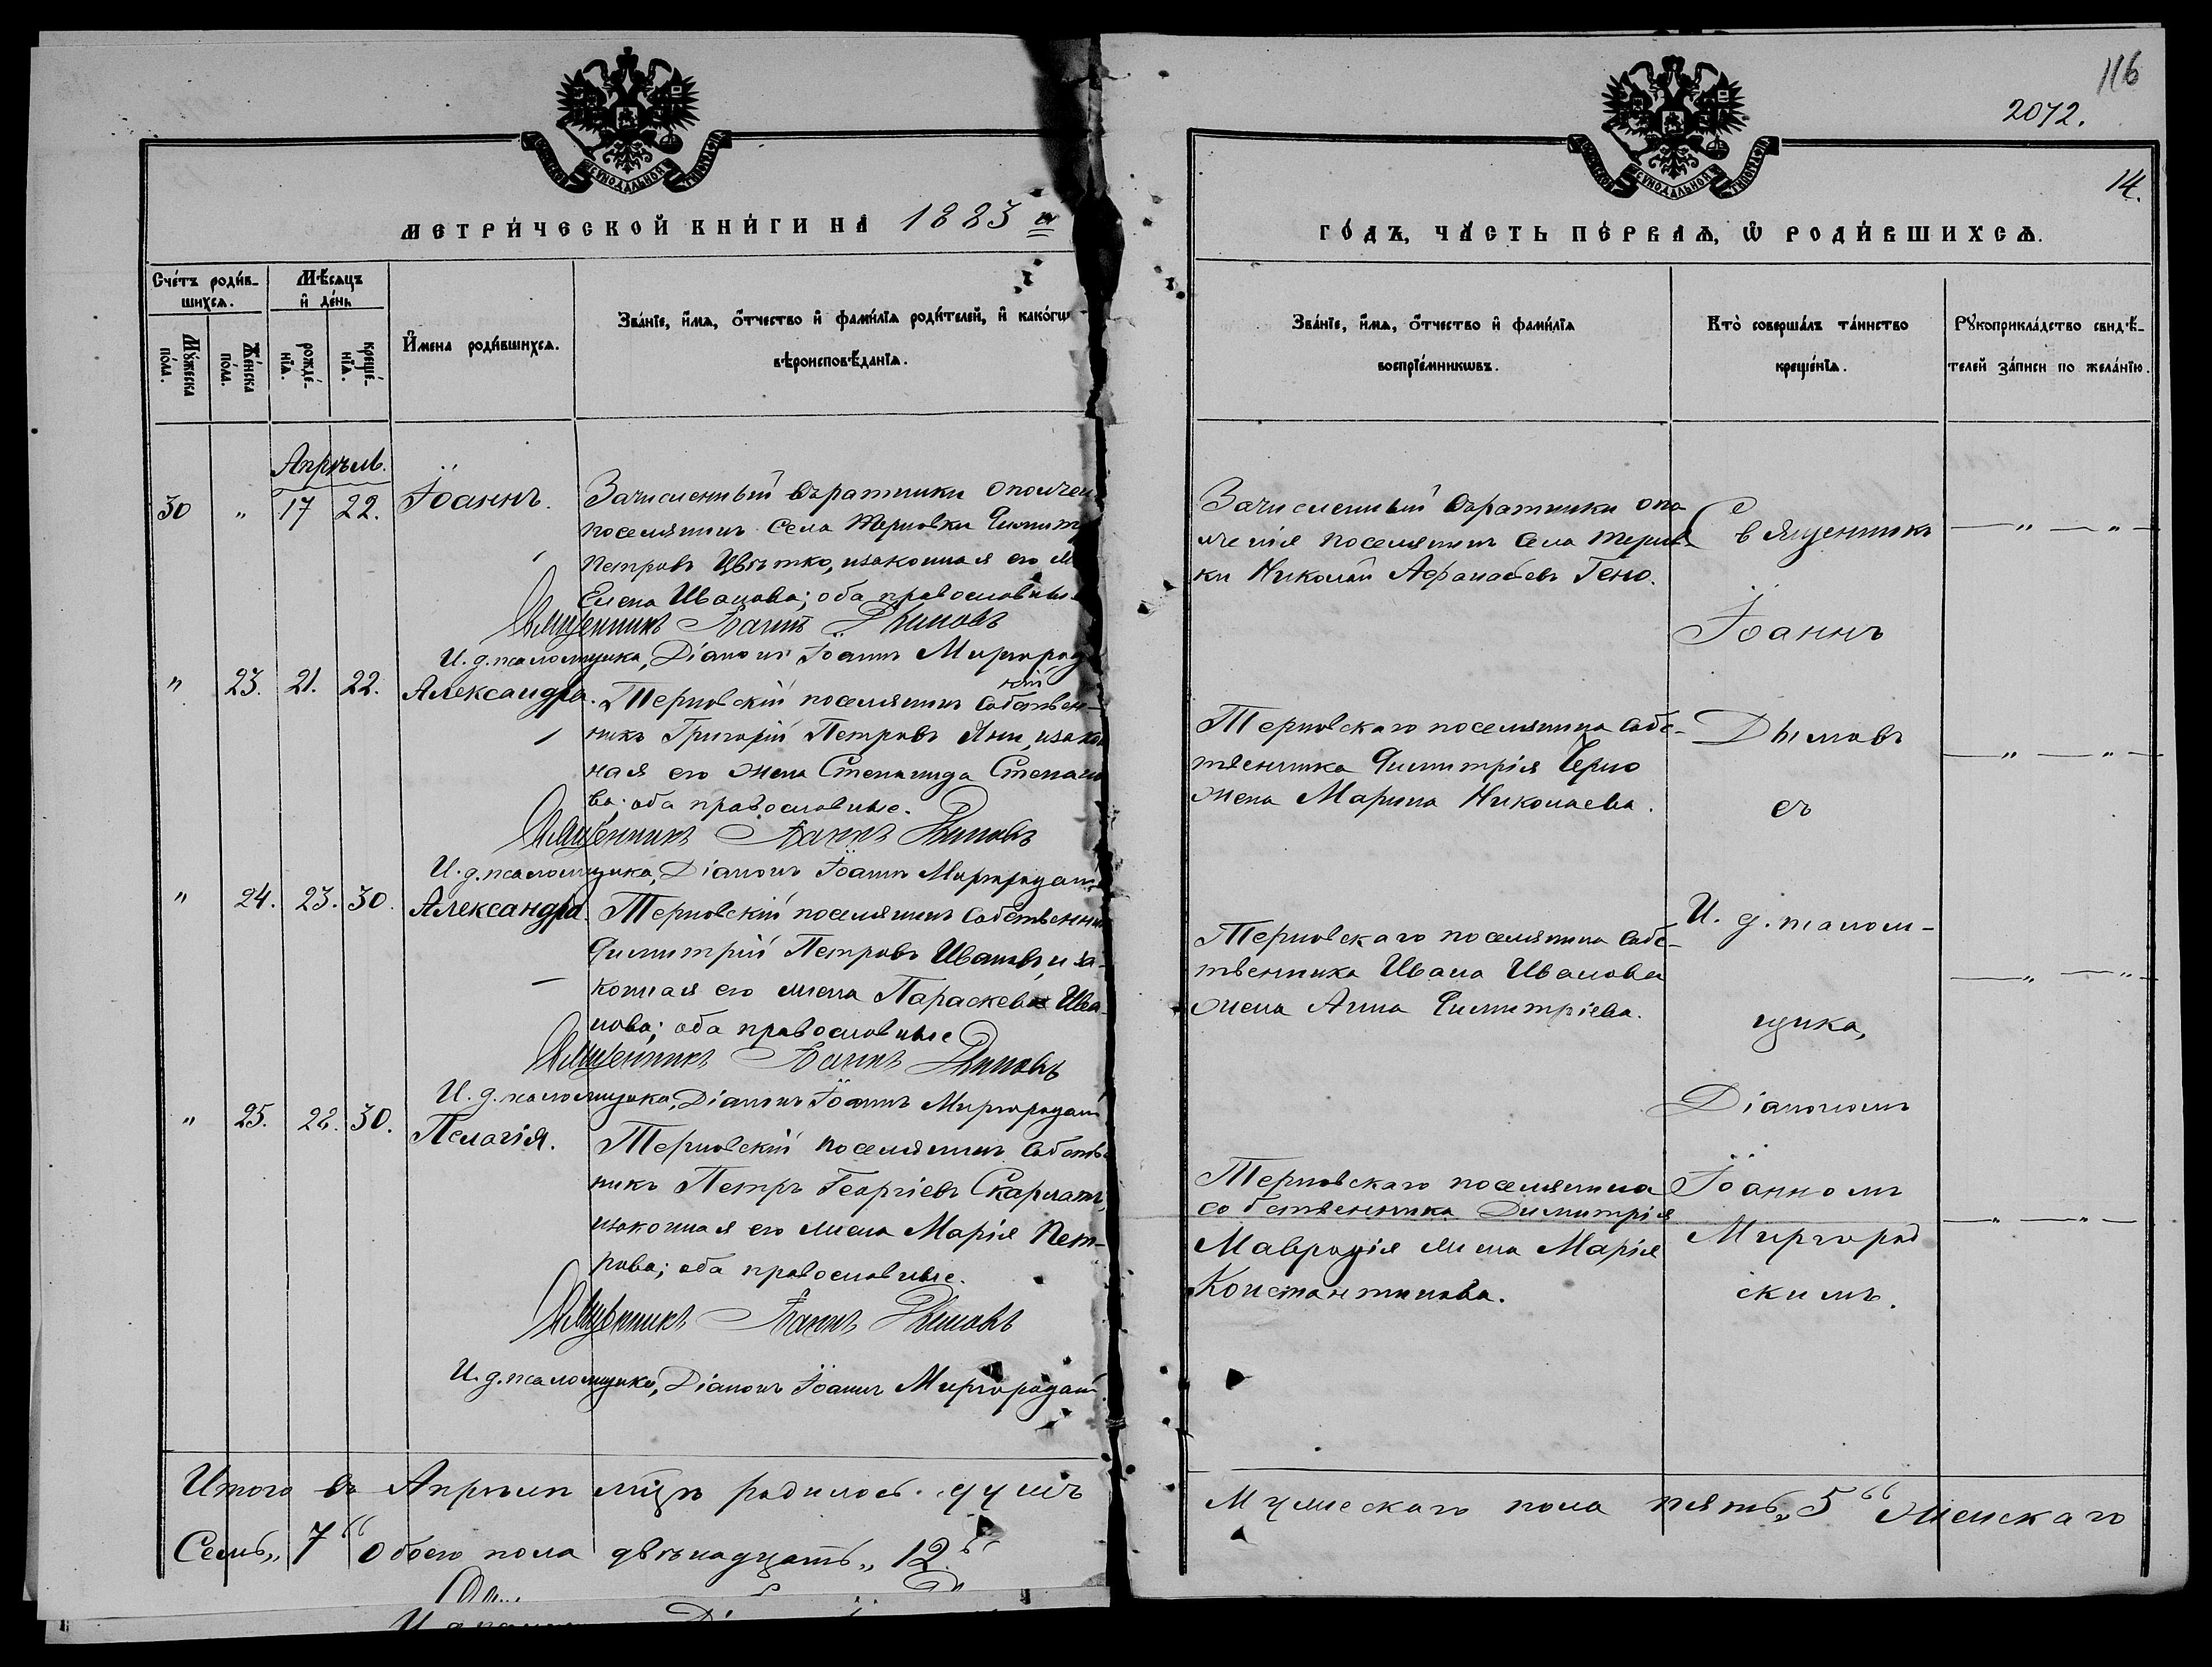 116
2072.
14.
МЕТРИ́ЧЕСКОЙ КНИ́ГИ НА 1883 й
ГО́ДЪ, ЧА́СТЬ ПЕ́РВАѦ, Ѽ РОДИ́ВШИХСѦ.
Сче́тъ роди́в-
шихсѧ.
Мѣ́сѧцъ
и҆ де́нь
Мꙋ́жеска
по́ла.
Же́нска
по́ла.
рожде́-
нїѧ.
креще́-
нїѧ.
И҆мена роди́вшихсѧ.
Зва́нїе, и҆́мѧ, ѻ҆́тчество и҆ фами́лїѧ роди́телей, и҆ како́гѡ
вѣроисповѣ́данїѧ.
Зва́нїе, и҆́мѧ, ѻ҆́тчество и҆ фами́лїѧ
воспрїе́мникѡвъ.
Кто̀ соверша́лъ та́инство
креще́нїѧ.
Рꙋкоприкла́дство свидѣ́-
телей за́писи по жела́нїю.
Апрѣль.
30 " 17 22. Іоаннъ.
Зачисленный въратники ополчен
поселянинъ села Терновки Димит
Петровъ Цвѣтко, изаконная его
Елена Иванова; оба православны
Священникъ Іоаннъ Дымовъ
И. д. псаломщика, Діаконъ Іоаннъ Миргород
Зачисленный въратники опо
лченія поселянинъ села Тернов-
ки Николай Афанасьевъ Гено.
" 23. 21. 22. Александра.
Терновскій поселянинъ Собствен-
никъ Григорій Петровъ Яни, изакон
ная его жена Степанида Степано
ва; оба православные.
Священникъ Іоаннъ Дымовъ
И. д. псаломщика, Діаконъ Іоаннъ Миргородскій
Терновскаго поселянина Собс-
твенника Димитрія Черно
жена Марина Николаева.
" 24. 23. 30. Александра.
Терновскій поселянинъ Собственни
Димитрій Петровъ Ивановъ, и за-
конная его жена Параскева Ива-
нова; оба православные
Священникъ Іоаннъ Дымовъ
И. д. псаломщика, Діаконъ Іоаннъ Миргородскій
Терновскаго поселянина Собс-
твенника Ивана Иванова
жена Анна Димитріева.
" 25. 28. 30. Пелагія.
Терновскій поселянинъ Собств
никъ Петръ Георгіевъ Скарлатъ,
изаконная его жена Марія Пет-
рова; оба православные.
Священникъ Іоаннъ Дымовъ
И. д. псаломщика, Діаконъ Іоаннъ Миргородскій
Терновскаго поселянина
собственника Димитрія
Мавродія жена Марія
Константинова.
Священникъ
Іоаннъ
Дымовъ
съ
И. д. псалом-
щика,
Діакономъ
Іоанномъ
Миргород
скимъ.
Итого въ Апрѣлѣ мцѣ родилось душъ
Мужескаго пола пять „5“ Женскаго
Семь „7“ Обоего пола двѣнадцать „12“